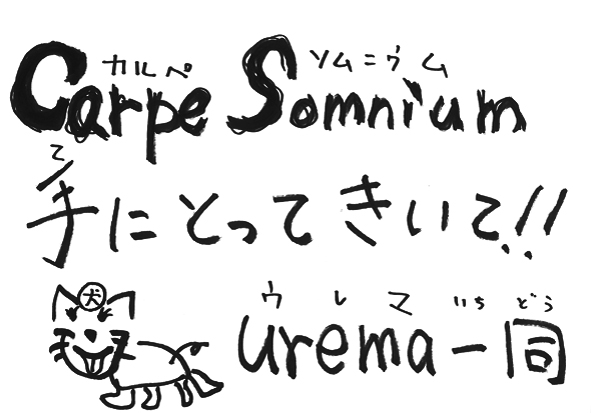 カルペ ソムニウム
Carpe Somnium
て
手にとってきいて!!
犬
ウレマ いちどう
urema一同